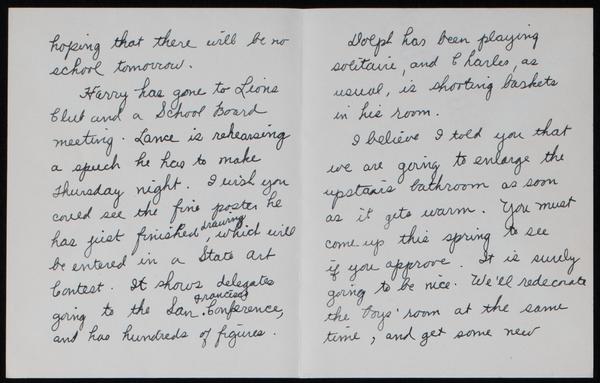 hoping that there will be no
school tomorrow.
Harry has gone to Lions
Club and a School Board
meeting. Lance is rehearsing
a speech he has to make
Thursday night. I wish you
could see the fine poster he
has just finished drawing, which will
be entered in a State Art
Contest. It shows delegates
going to the San Francisco Conference,
and has hundreds of figures.
Dolph has been playing
solitaire, and Charles, as
usual, is shooting baskets
in his room.
I believe I told you that
we are going to enlarge the
upstairs bathroom as soon
as it gets warm. You must
come up this spring to see
if you approve. It is surely
going to be nice. We'll redecorate
the boys' room at the same
time, and get some new